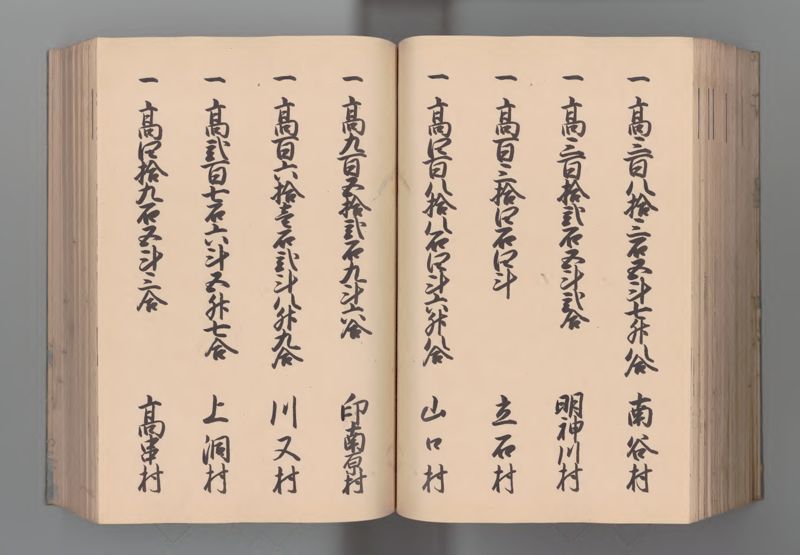 一 高三百八拾三石五斗七升八合 南谷村
一 高三百拾弐石五斗弐合 明神川村
一 高百三拾四石四斗 立石村
一 高四百八拾八石四斗六升八合 山口村
一 高九百五拾弐石九斗六合 印南原村
一 高百六拾壱石弐斗八升九合 川又村
一 高弐百七石六斗五升七合 上洞村
一 高四拾九石五斗三合 高串村